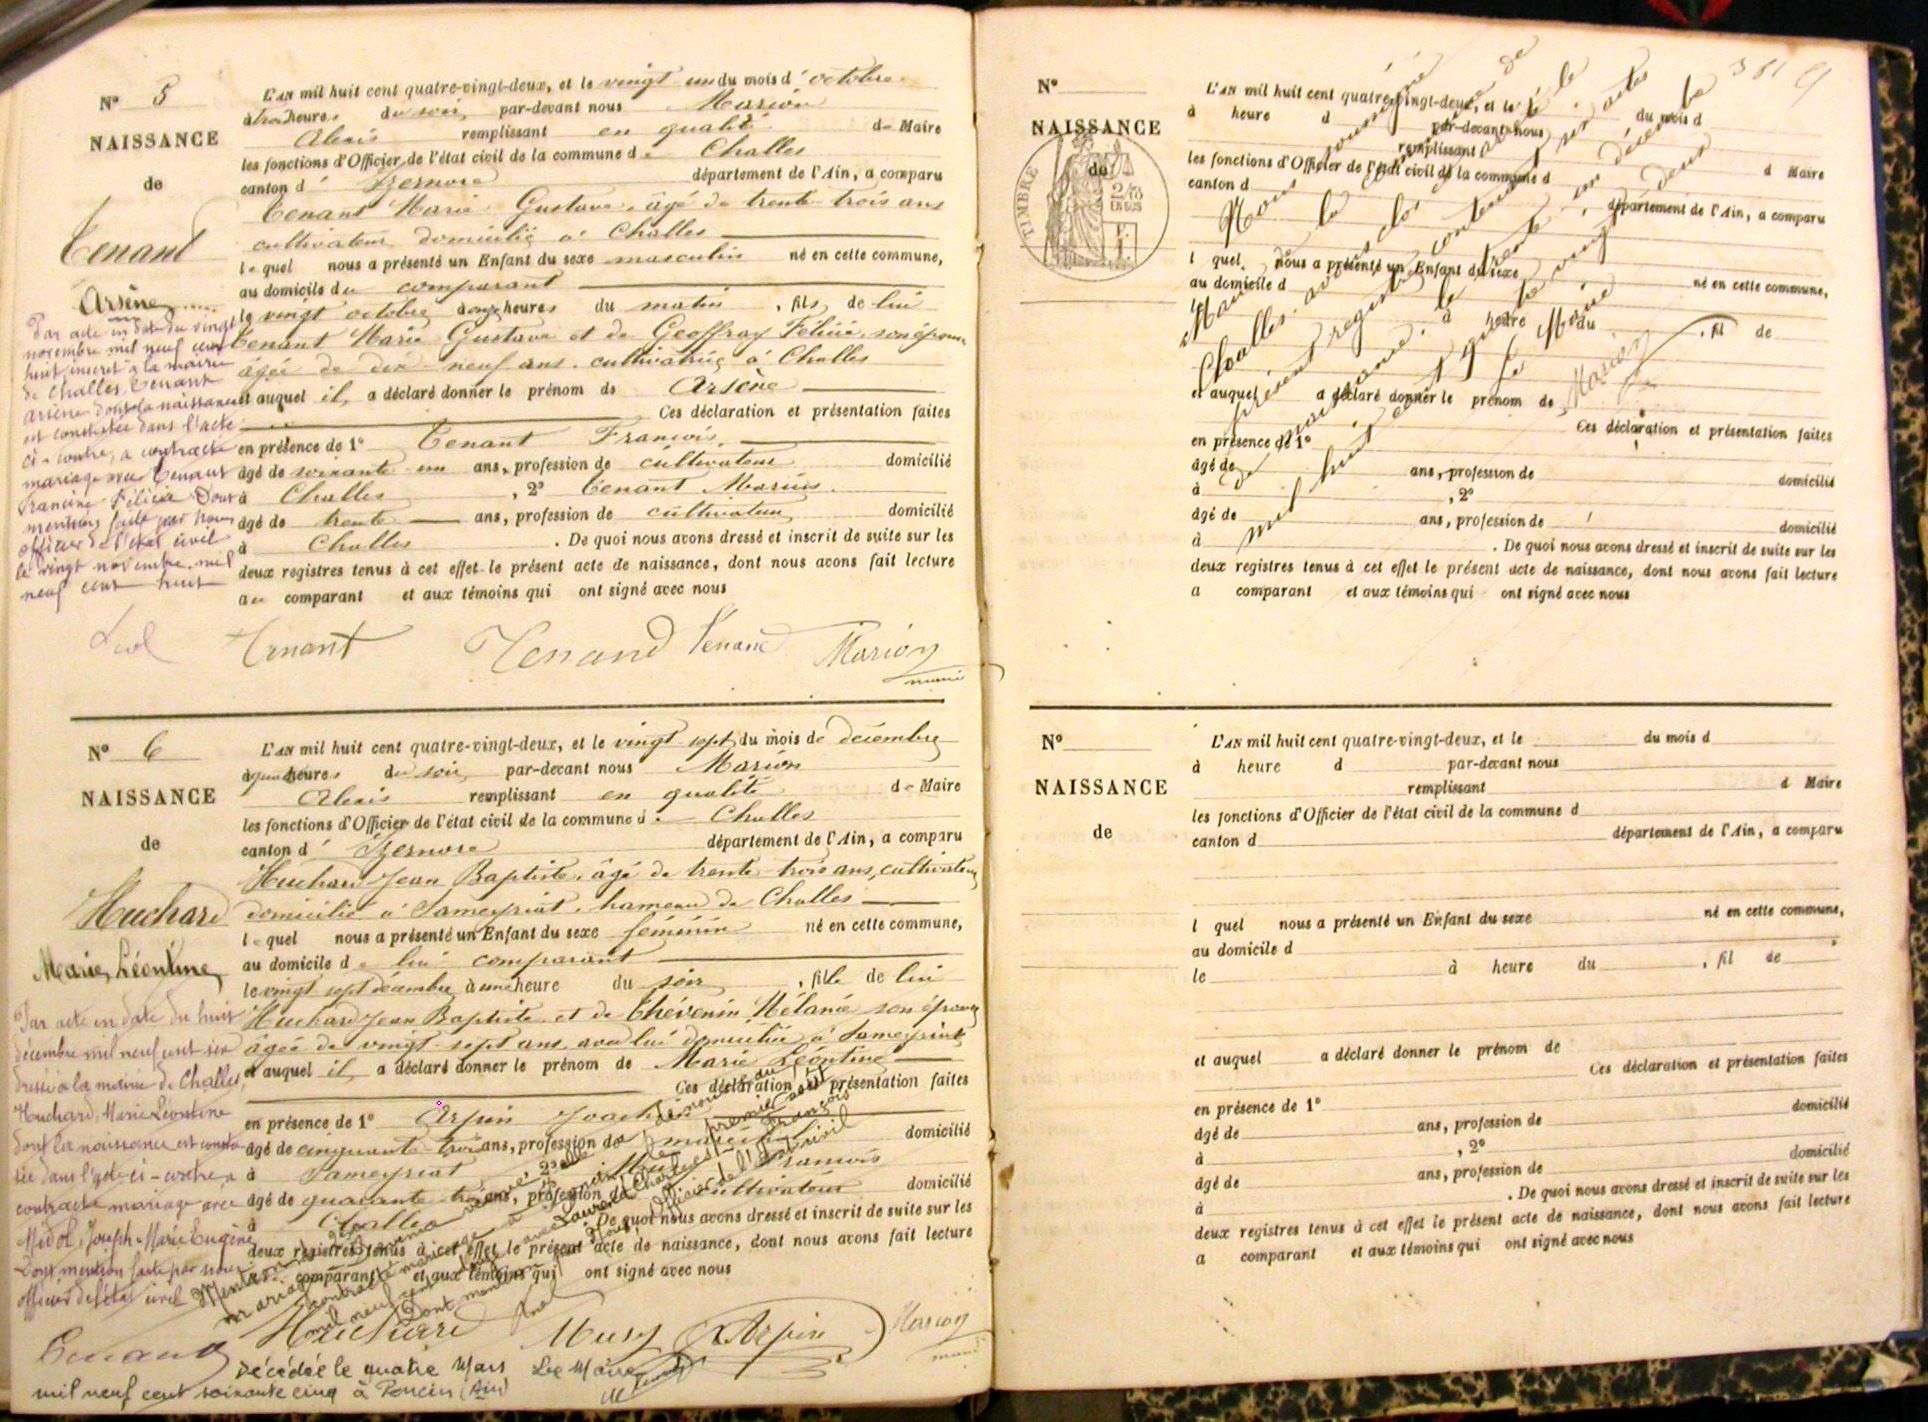 N° 5
NAISSANCE
de
Tenant
Arsène
L'AN mil huit cent quatre-vingt-deux, et le vingt un du mois d'octobre
à trois heures du soir par-devant nous Marion
Alexis remplissant en qualité de Maire
les fonctions d'Officier de l'état civil de la commune de Challes
canton d'Izernore département de l'Ain, a comparu
Tenant Marie Gustave, âgé de trente trois ans
cultivateur domicilié à Challes
lequel nous a présenté un Enfant du sexe masculin né en cette commune,
au domicile du comparant
le vingt octobre à onze heures du matin, fils de lui
Tenant Marie Gustave et de Geoffray Félicie, son épouse
âgée de dix-neuf ans, cultivatrice à Challes
et auquel il a déclaré donner le prénom de Arsène
Ces déclaration et présentation faites
en présence de 1° Tenant François,
âgé de soixante un ans, profession de cultivateur domicilié
à Challes, 2° Tenant Marius
âgé de trente ans, profession de cultivateur domicilié
à Challes. De quoi nous avons dressé et inscrit de suite sur les
deux registres tenus à cet effet le présent acte de naissance, dont nous avons fait lecture
au comparant et aux témoins qui ont signé avec nous
Par acte en date du vingt
novembre mil neuf cent
huit, inscrit à la mairie
de Challes, Tenant
Arsène dont la naissance
est constatée dans l'acte
ci-contre, a contracté
mariage avec Tenant
Francine Félicie Dont
mention faite par nous
officier de l'état civil
le vingt novembre mil
neuf cent huit
Tenant Tenand Tenant Marion
maire
N° 6
NAISSANCE
de
Huchard
Marie Léontine
L'AN mil huit cent quatre-vingt-deux, et le vingt sept du mois de décembre
à quatre heures du soir par-devant nous Marion
Alexis remplissant en qualité de Maire
les fonctions d'Officier de l'état civil de la commune de Challes
canton d'Izernore département de l'Ain, a comparu
Huchard Jean Baptiste, âgé de trente trois ans, cultivateur
domicilié à Sameyriat, hameau de Challes
lequel nous a présenté un Enfant du sexe féminin né en cette commune,
au domicile de lui comparant
le vingt sept décembre à une heure du soir, fille de lui
Huchard Jean Baptiste et de Thévenin Mélanie son épouse
âgée de vingt sept ans avec lui domiciliée à Sameyriat
et auquel il a déclaré donner le prénom de Marie Léontine
Ces déclaration et présentation faites
en présence de 1° Arpin Joachim
âgé de cinquante trois ans, profession de domicilié
à Sameyriat François
âgé de quarante trois ans, profession de cultivateur domicilié
à Challes De quoi nous avons dressé et inscrit de suite sur les
deux registres tenus à cet effet le présent acte de naissance, dont nous avons fait lecture
comparant et aux témoins qui ont signé avec nous
Par acte en date du huit
décembre mil neuf cent six
dressé à la mairie de Challes,
Huchard, Marie Léontine
dont la naissance est consta-
tée dans l'acte ci-contre, a
contracté mariage avec
Midol, Joseph Marie Eugène
Dont mention faite par nous
officier de l'état civil
Tenand
Huchard Musy Arpin Marion
Décédée le quatre Mars Le Maire
mil neuf cent soixante cinq à Poncin (Ain)
381
N°
NAISSANCE
de
TIMBRE
L'AN mil huit cent quatre-vingt-deux, et le du mois d
à heure d par-devant nous
remplissant
les fonctions d'Officier de l'état civil de la commune d d Maire
canton d département de l'Ain, a comparu
l quel nous a présenté un Enfant du sexe né en cette commune,
au domicile d
le à heure du , fil de
et auquel a déclaré donner le prénom de
Ces déclaration et présentation faites
en présence de 1°
âgé de ans, profession de domicilié
à , 2°
âgé de ans, profession de domicilié
à . De quoi nous avons dressé et inscrit de suite sur les
deux registres tenus à cet effet le présent acte de naissance, dont nous avons fait lecture
a comparant et aux témoins qui ont signé avec nous
Nous soussigné
Maire de la commune de
Challes avons clos et arrêté le
présent registre contenant six actes
de naissance, le trente un décembre
mil huit cent quatre vingt deux
Le Maire
Marion
N°
NAISSANCE
de
L'AN mil huit cent quatre-vingt-deux, et le du mois d
à heure d par-devant nous
remplissant d Maire
les fonctions d'Officier de l'état civil de la commune d
canton d département de l'Ain, a comparu
l quel nous a présenté un Enfant du sexe né en cette commune,
au domicile d
le à heure du , fil de
et auquel a déclaré donner le prénom de
Ces déclaration et présentation faites
en présence de 1° domicilié
âgé de ans, profession de
à , 2° domicilié
âgé de ans, profession de
à . De quoi nous avons dressé et inscrit de suite sur les
deux registres tenus à cet effet le présent acte de naissance, dont nous avons fait lecture
a comparant et aux témoins qui ont signé avec nous